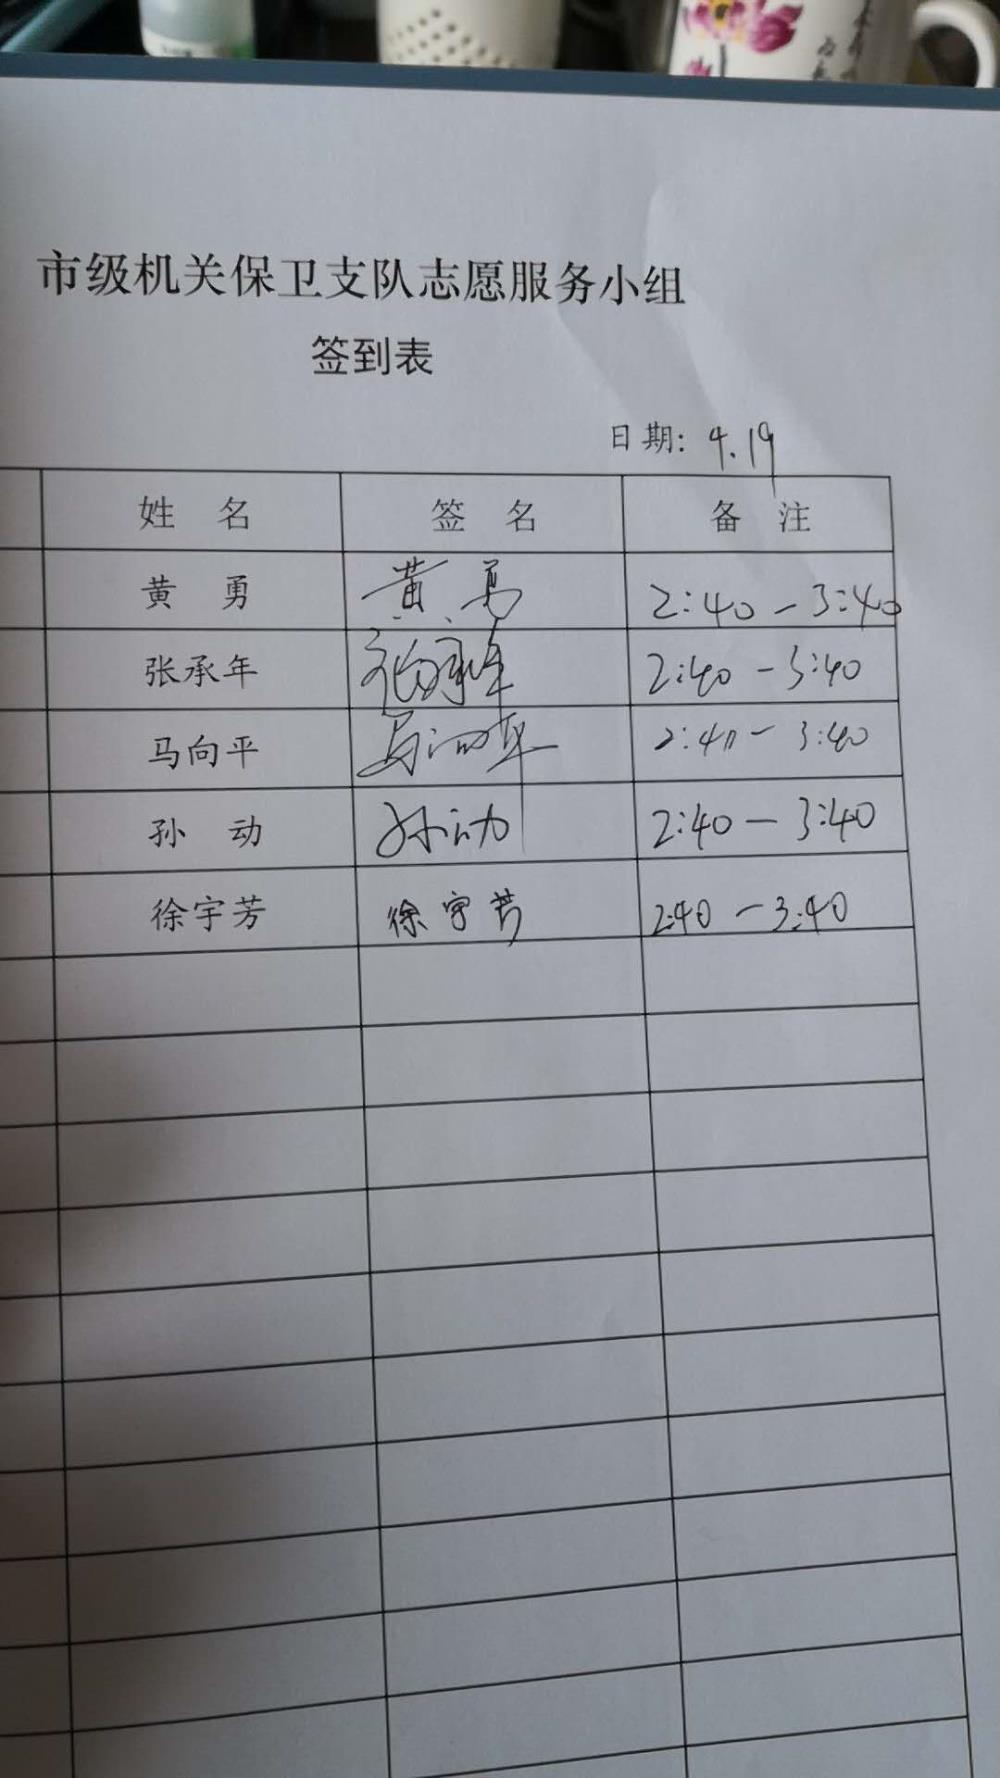 市级机关保卫支队志愿服务小组
签到表
日期: 4.19
姓名 签名 备注
黄勇 黄勇 2:40-3:40
张承年 张承年 2:40-3:40
马向平 马向平 2:40-3:40
孙动 孙动 2:40-3:40
徐宇芳 徐宇芳 2:40-3:40